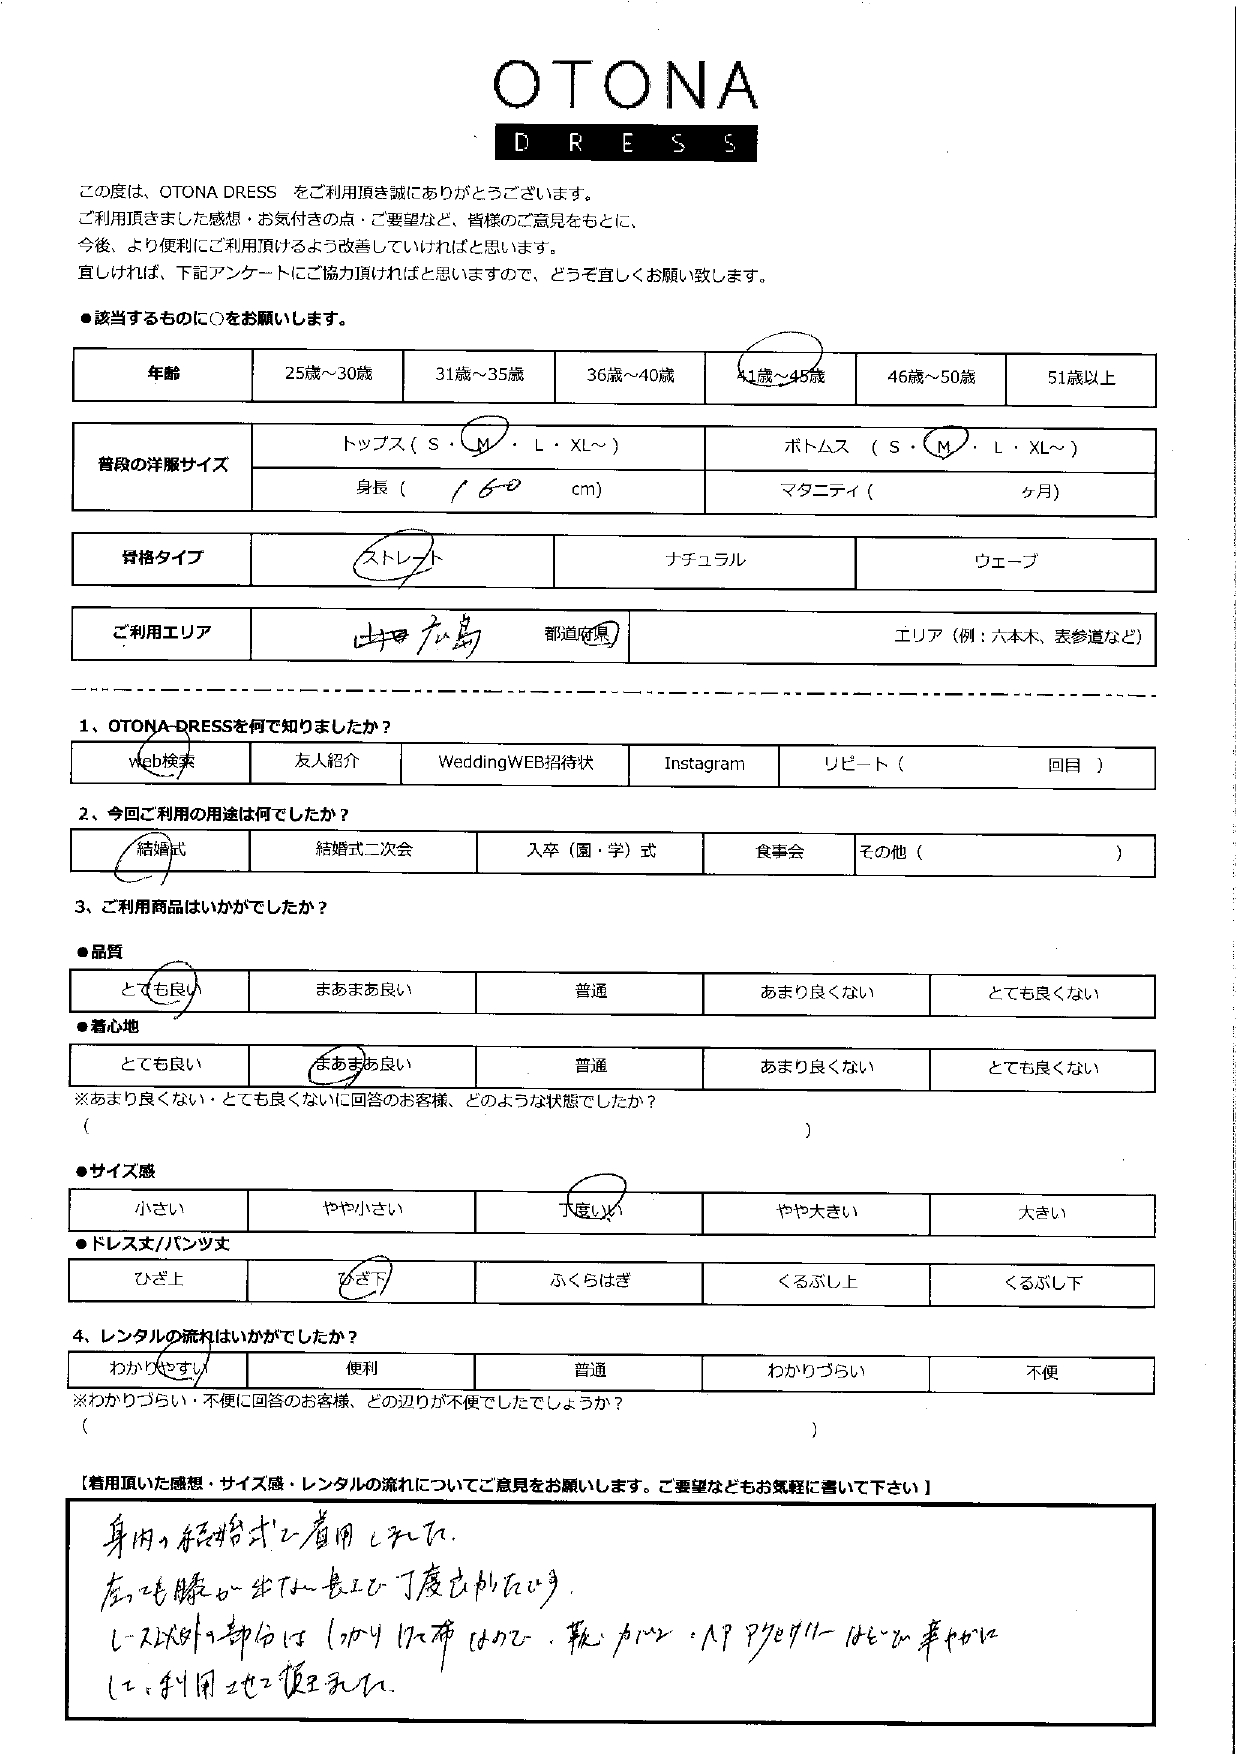 OTONA
DRESS
この度は、OTONA DRESS をご利用頂き誠にありがとうございます。
ご利用頂きました感想・お気付きの点・ご要望など、皆様のご意見をもとに、
今後、より便利にご利用頂けるよう改善していければと思います。
宜しければ、下記アンケートにご協力頂ければと思いますので、どうぞ宜しくお願い致します。
●該当するものに○をお願いします。
年齢 25歳～30歳 31歳～35歳 36歳～40歳 41歳～45歳 46歳～50歳 51歳以上
普段の洋服サイズ トップス ( S ・ M ・ L ・ XL～ ) ボトムス ( S ・ M ・ L ・ XL～ )
身長 ( 160 cm) マタニティ ( ヶ月)
骨格タイプ ストレート ナチュラル ウェーブ
ご利用エリア 広島 都道府県 エリア（例：六本木、表参道など）
1、OTONA DRESSを何で知りましたか？
web検索 友人紹介 WeddingWEB招待状 Instagram リピート ( 回目 )
2、今回ご利用の用途は何でしたか？
結婚式 結婚式二次会 入卒（園・学）式 食事会 その他 ( )
3、ご利用商品はいかがでしたか？
●品質
とても良い まあまあ良い 普通 あまり良くない とても良くない
●着心地
とても良い まあまあ良い 普通 あまり良くない とても良くない
※あまり良くない・とても良くないに回答のお客様、どのような状態でしたか？
( )
●サイズ感
小さい やや小さい 丁度いい やや大きい 大きい
●ドレス丈/パンツ丈
ひざ上 ひざ下 ふくらはぎ くるぶし上 くるぶし下
4、レンタルの流れはいかがでしたか？
わかりやすい 便利 普通 わかりづらい 不便
※わかりづらい・不便に回答のお客様、どの辺りが不便でしたでしょうか？
( )
【着用頂いた感想・サイズ感・レンタルの流れについてご意見をお願いします。ご要望などもお気軽に書いて下さい】
身内の結婚式で着用しました。
座っても膝が出ない長さで丁度良かったです。
レース以外の部分はしっかりした布なので、靴・カバン・ヘアアクセサリーなどで華やかに
して、利用させて頂きました。